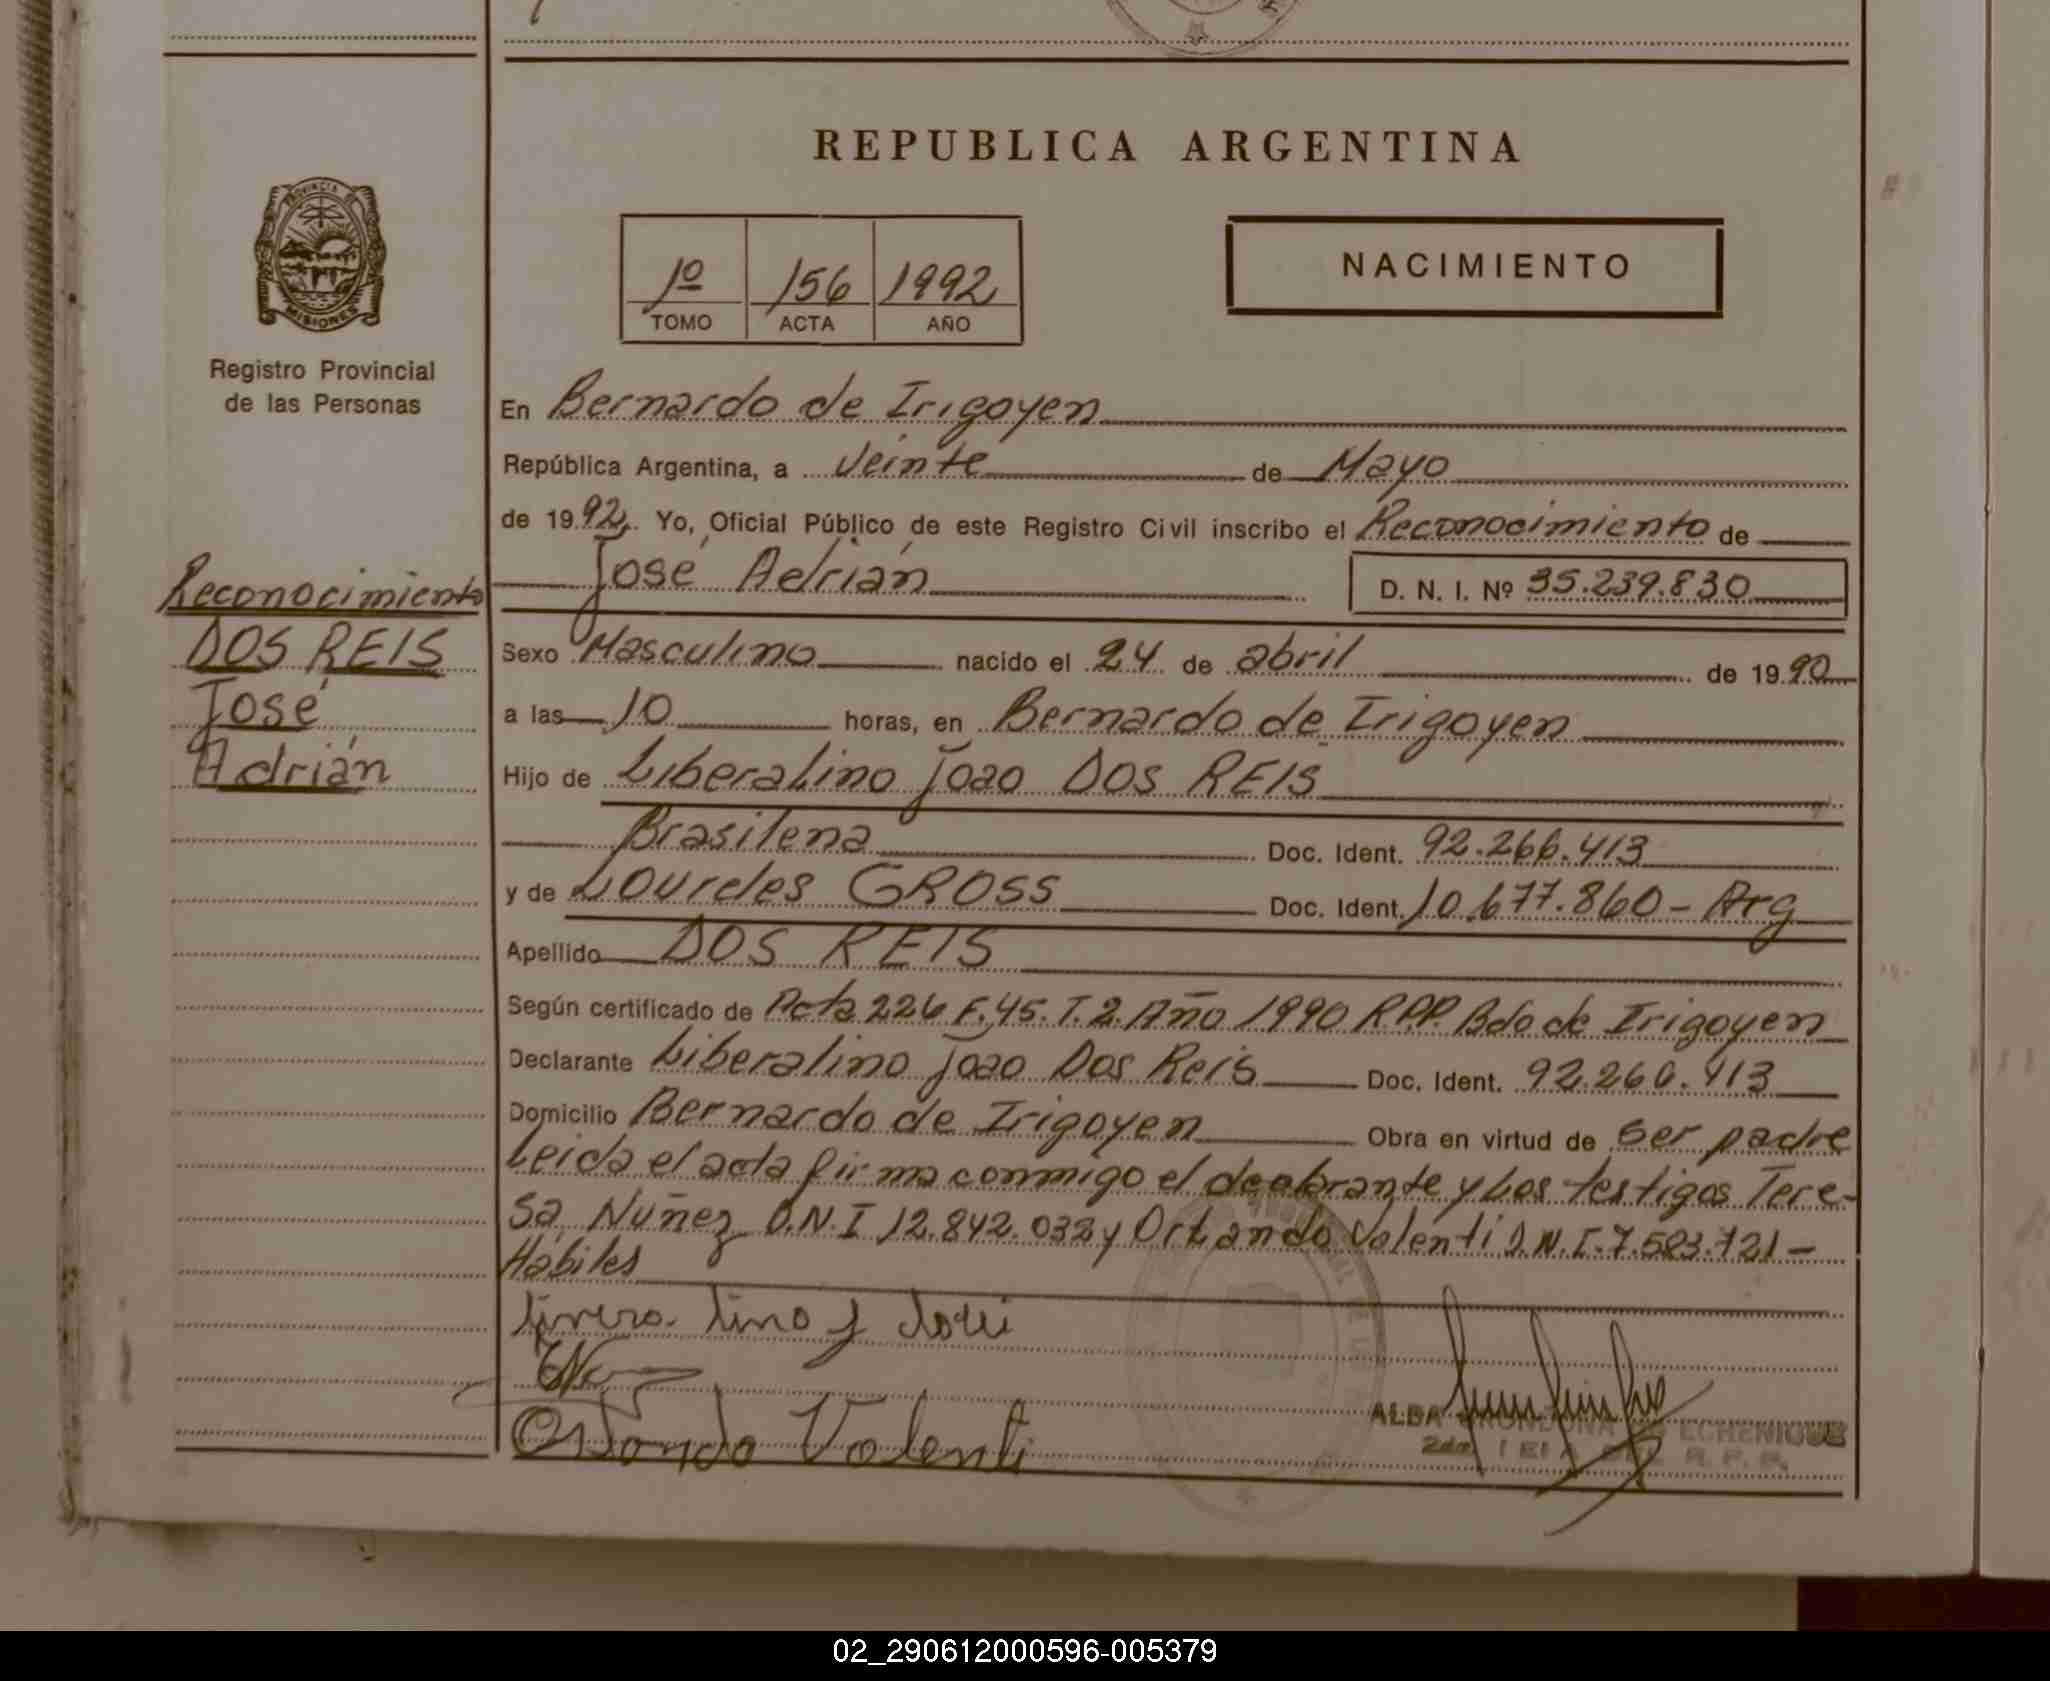 REPUBLICA ARGENTINA
PROVINCIA DE
MISIONES
Registro Provincial
de las Personas
1º 156 1992
TOMO ACTA AÑO
NACIMIENTO
En Bernardo de Irigoyen
República Argentina, a Veinte de Mayo
de 1992. Yo, Oficial Público de este Registro Civil inscribo el Reconocimiento de
José Adrián D. N. I. Nº 35.239.830
Reconocimiento
DOS REIS
José
Adrián
Sexo Masculino nacido el 24 de abril de 1990
a las 10 horas, en Bernardo de Irigoyen
Hijo de Liberalino Joao DOS REIS
Brasilena Doc. Ident. 92.266.413
y de Lourdes GROSS Doc. Ident. 10.677.860 - Arg
Apellido DOS REIS
Según certificado de Acta 226 F. 45. T. 2. Año 1990 R.P.P. Bdo de Irigoyen
Declarante Liberalino Joao Dos Reis Doc. Ident. 92.266.413
Domicilio Bernardo de Irigoyen Obra en virtud de Ser padre
Leida el acta firma conmigo el declarante y Los testigos Tere-
sa Nuñez D.N.I 12.842.032 y Orlando Valenti D.N.I. 7.583.721 -
Hábiles
Orlando Valenti
ALBA ECHENIQUE
R. P. P.
02_290612000596-005379